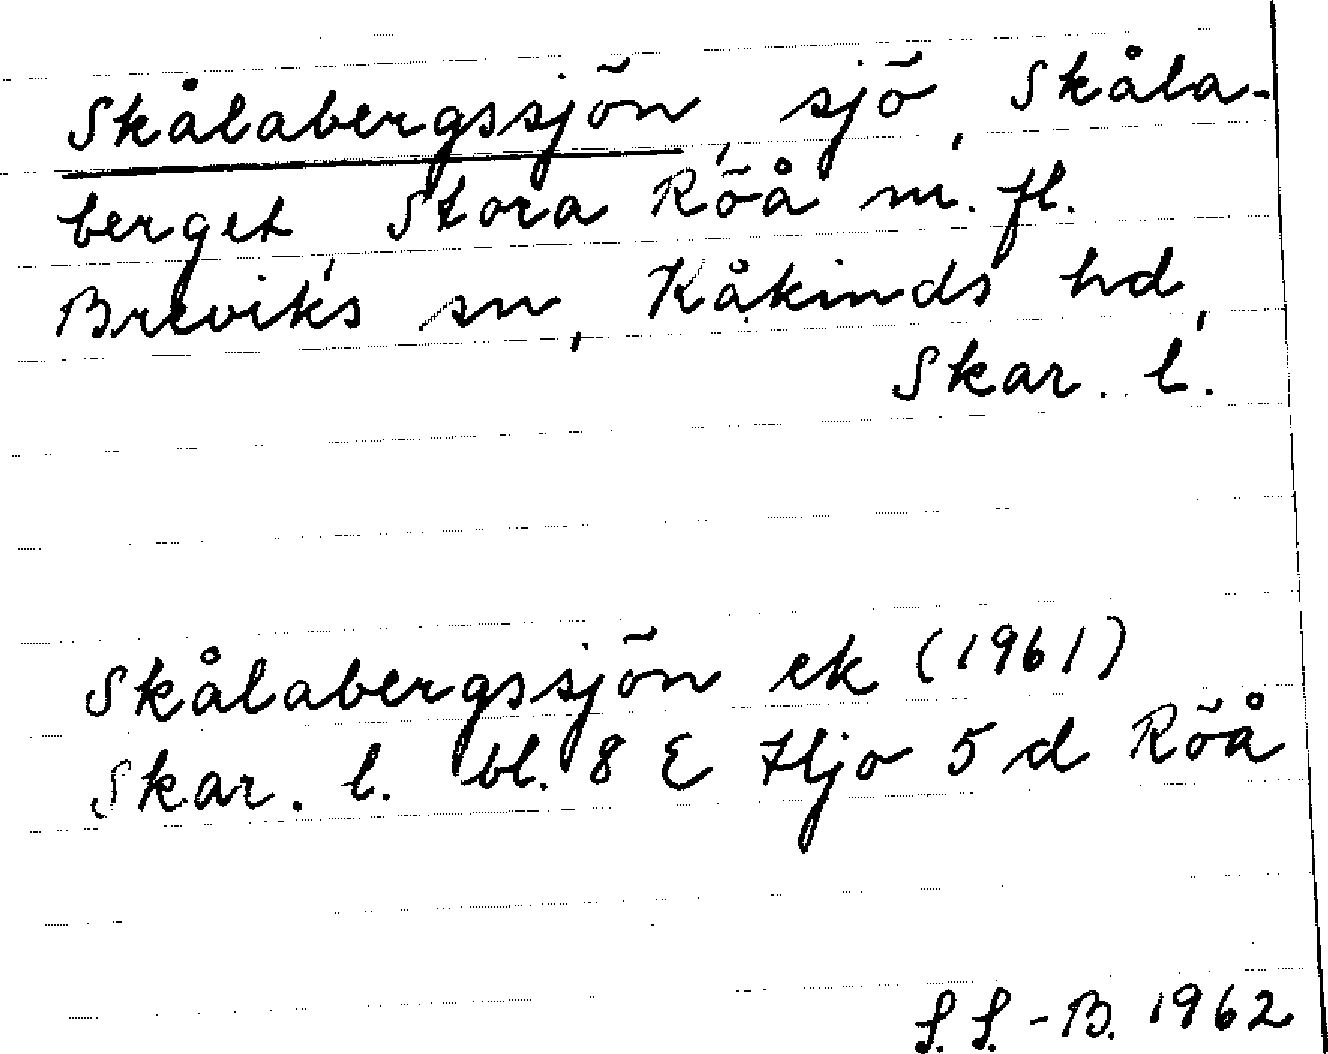 Skålabergssjön, sjö, Skåla-
berget, Stora Röå m. fl.
Breviks sn, Kåkinds hd,
Skar. l.
Skålabergssjön ek (1961)
Skar. l. bl. 8 E Hjo 5 d Röå
S. S.-B. 1962